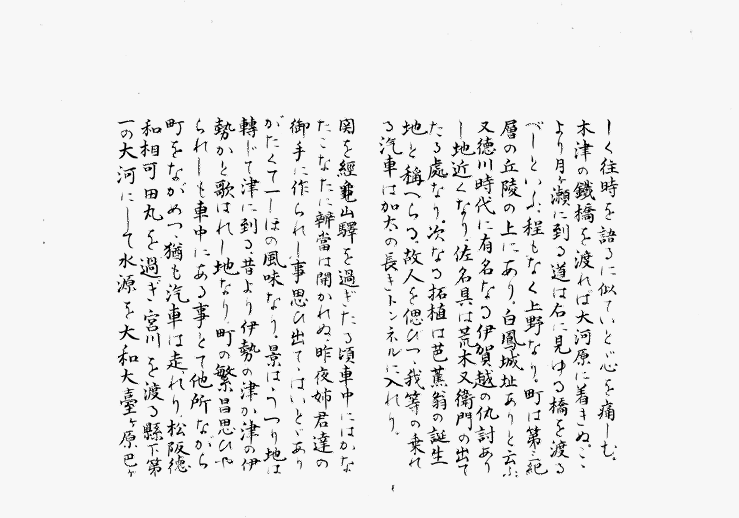 しく往時を語るに似ていとど心を痛しむ。
木津の鐵橋を渡れば大河原に着きぬ。ここ
より月ヶ瀬に到る道は右に見ゆる橋を渡る
べしといふ、程もなく上野なり。町は第三紀
層の丘陵の上にあり。白鳳城址ありと云ふ
又徳川時代に有名なる伊賀越の仇討あり
し地近くなり。佐名具は荒木又衛門の出て
たる處なり。次なる拓植は芭蕉翁の誕生
地と稱へらる。故人を偲びつつ我等の乘れ
る汽車は加太の長きトンネルに入れり。
関を經龜山驛を過ぎたる頃車中にはかな
たこなたに辨當は開かれぬ。昨夜姉君達の
御手に作られし事思ひ出ていとどあり
がたくて一しほの風味なり。景はうつり地は
轉じて津に到る昔より伊勢の津か津の伊
勢かと歌はれし地なり。町の繁昌思ひや
られしも車中にある事とて他所ながら
町をながめつつ猶も汽車は走れり松阪徳
和相可田丸を過ぎ宮川を渡る縣下第
一の大河にして水源を大和大臺ヶ原巴ヶ